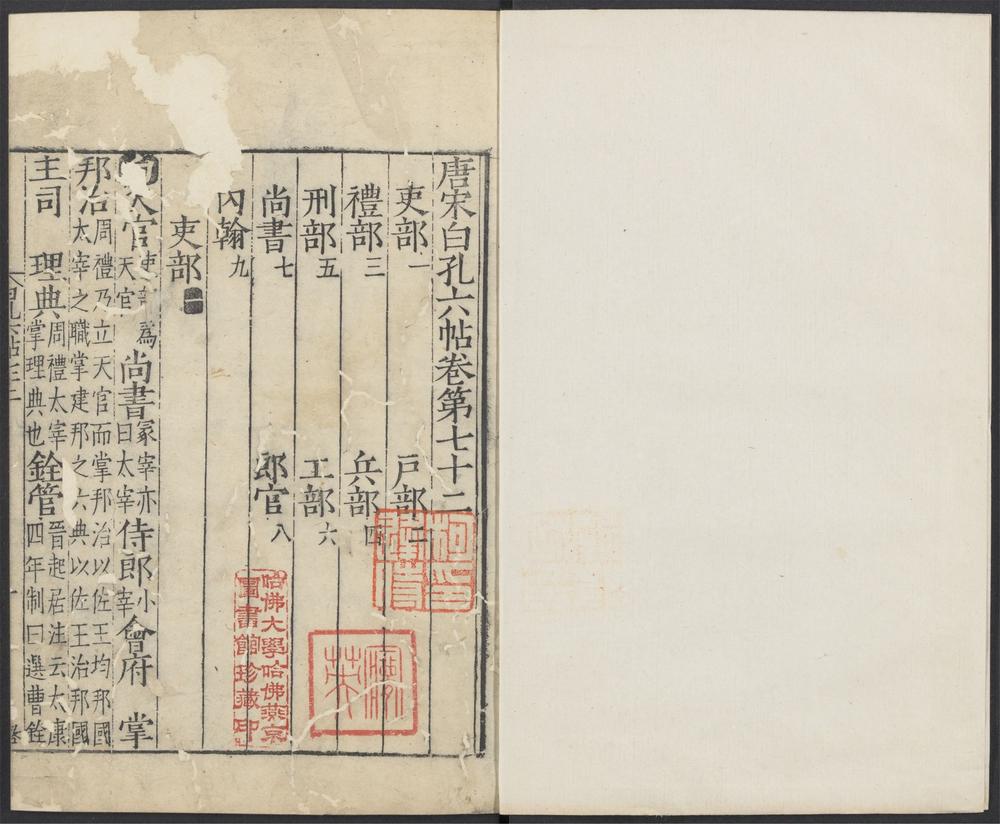 唐宋白孔六帖卷第七十二
吏部一 戶部二
禮部三 兵部四
刑部五 工部六
尚書七 郎官八
內翰九
吏部
天官吏部為天官尚書冢宰亦曰太宰侍郎小宰會府 掌
邦治周禮乃立天官而掌邦治以佐王均邦國太宰之職掌建邦之六典以佐王治邦國
主司 理典周禮太宰掌理典也銓管晉起居注云太康四年制曰選曹銓
哈佛大學哈佛燕京
圖書館珍藏印